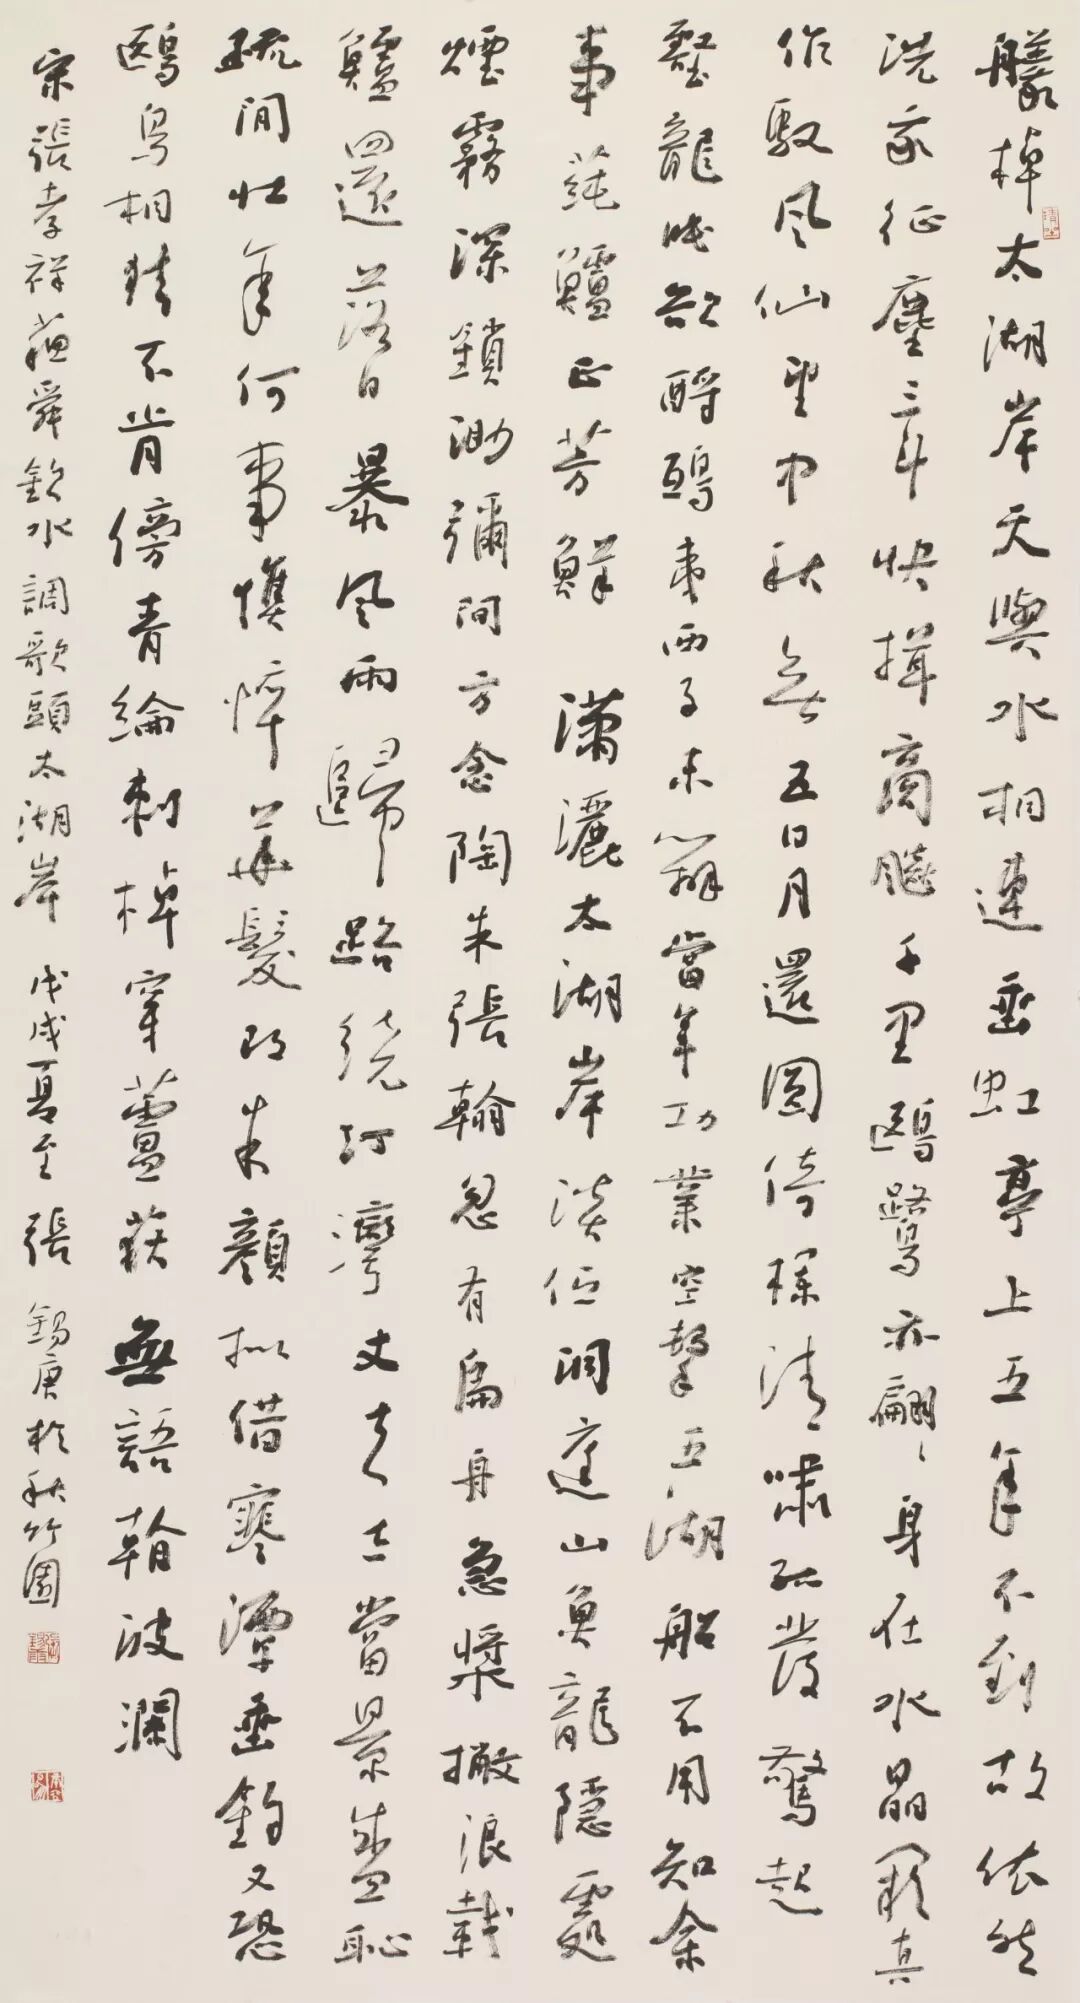 艤棹太湖岸天與水相連垂虹亭上五年不到故依然
洗我征塵三斗快揖商飆千里鷗鷺亦翩翩身在水晶闕真
作馭風仙望中秋無五日月還圓倚欄清嘯孤發驚起
壑龍眠欲酹鴟夷西子未辦當年功業空擊五湖船不用知余
事蓴鱸正芳鮮 瀟灑太湖岸淡佇洞庭山魚龍隱處
煙霧深鎖渺彌間方念陶朱張翰忽有扁舟急槳撇浪載
鱸還落日暴風雨歸路繞汀灣丈夫志當景盛恥
疏閒壯年何事憔悴華髮改朱顏擬借寒潭垂釣又恐
鷗鳥相猜不肯傍青綸刺棹穿蘆荻無語看波瀾
宋張孝祥蘇舜欽水調歌頭太湖岸 戊戌夏至張錫庚於秋竹園